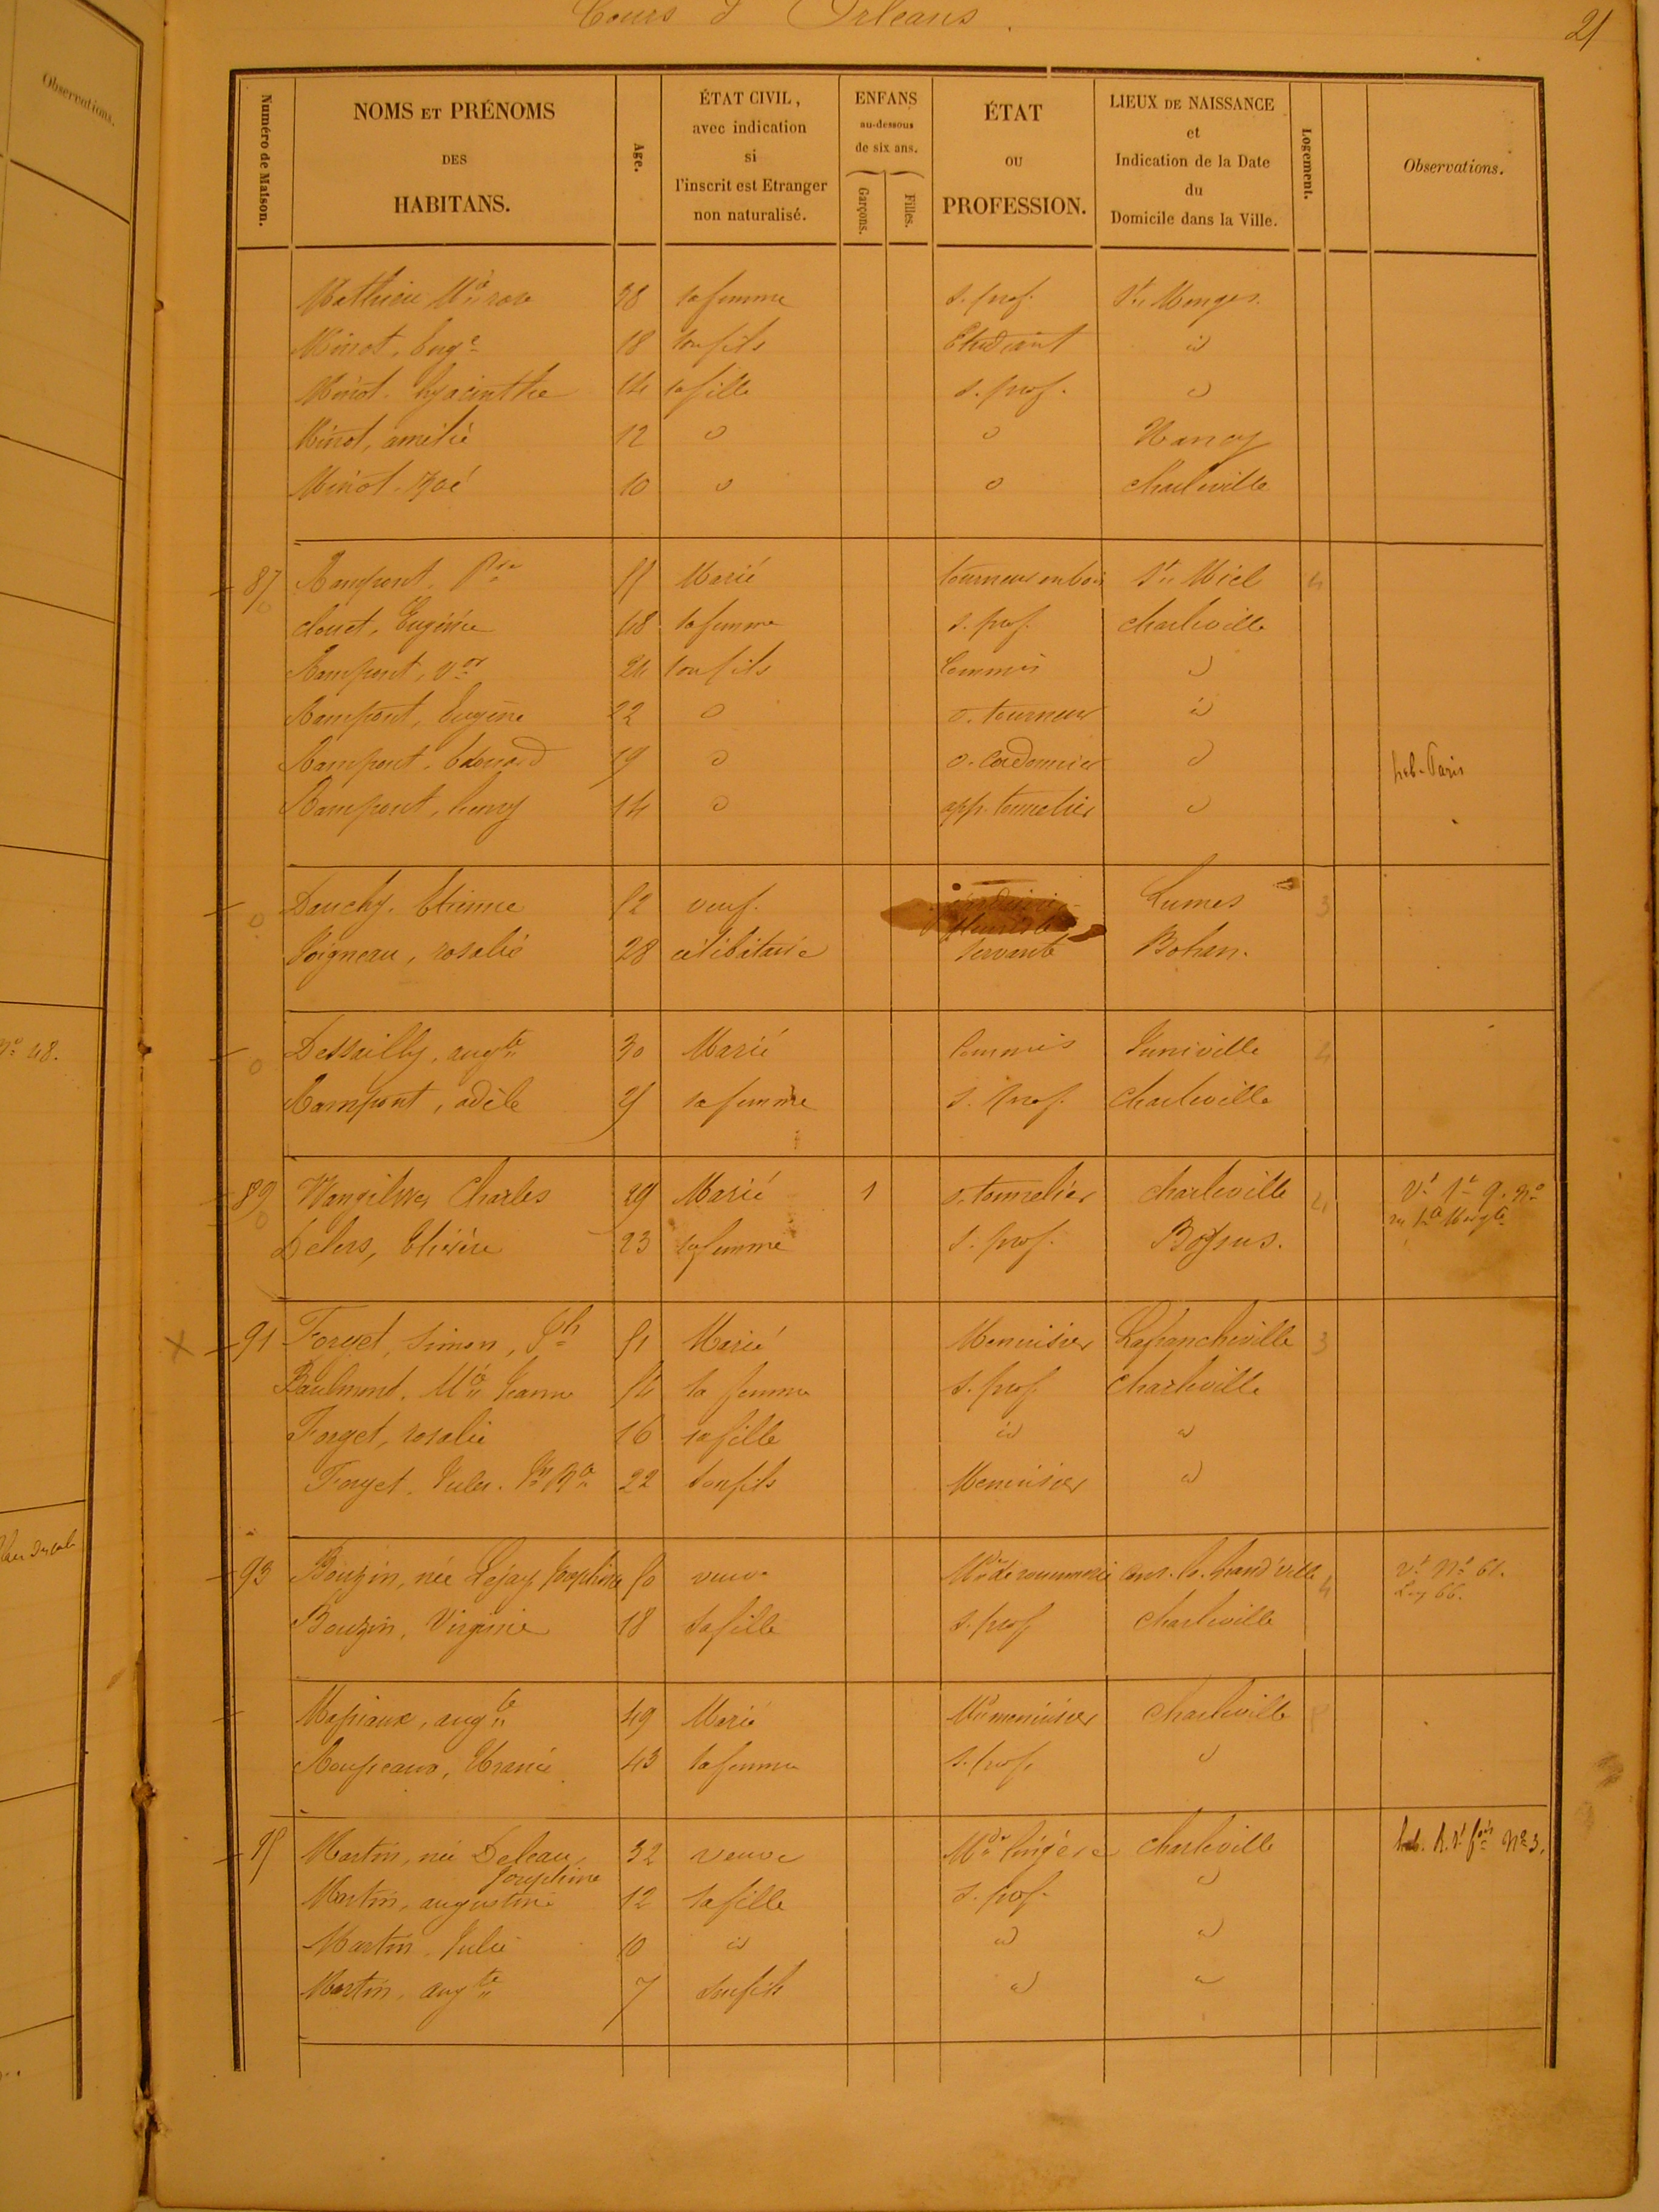 Observations.
Nº 48.
Cours d'Orléans.
21
Numéro de Maison.
NOMS ET PRÉNOMS
DES
HABITANS.
Age.
ÉTAT CIVIL,
avec indication
si
l'inscrit est Etranger
non naturalisé.
ENFANS
au-dessous
de six ans.
Garçons.
Filles.
ÉTAT
OU
PROFESSION.
LIEUX DE NAISSANCE
et
Indication de la Date
du
Domicile dans la Ville.
Logement.
Observations.
Mathieu Mie rose 38 sa femme s. prof. St Menges.
Minot, Euge 18 son fils Etudiant id
Minot. hyacinthe 14 sa fille s. prof. id
Minot, amélie 12 id id Nancy
Minot. Zoé 10 id id Charleville
87 Rampont, Pre 55 Marié tourneur en bois St Miel 4
Clouet, Eugénie 48 sa femme s. prof. Charleville
Rampont, Vor 24 son fils Commis id
Rampont, Eugène 22 id o. tourneur id
Rampont, Edouard 19 id o. Cordonnier id hab. Paris
Rampont, henry 14 id app. tonnelier id
Dauchy. Etienne 52 veuf. Lumes 3
Poigneau, rosalie 28 célibataire Servante Bohan.
Dessailly, augte 30 Marié Commis Juniville 4
Rampont, adèle 25 sa femme s. prof. Charleville
89 Charles 29 Marié 1 o. tonnelier Charleville 4
Delers, 23 sa femme s. prof. Bossus.
91 Forget, Simon, Jh 51 Marié Menuisier Lafrancheville 3
Baulmont. Mie Jeanne 54 sa femme s. prof. Charleville
Forget, rosalie 16 sa fille id id
Forget. Jules. Jn Bte 22 son fils Menuisier id
93 Bouzin, née Lejay Josephine 50 veuve 4 Vr. Nº 61.
Bouzin, Virginie 18 sa fille s. prof Charleville
Massiaux, augte 49 Marié Md menuisier Charleville 5
Rousseaux, 43 sa femme s. prof. id
95 Martin, née Deleau, 32 veuve Mde lingère Charleville hab. R. St fois Nº 3.
Josephine
Martin, augustine 12 sa fille s. prof. id
Martin. Julie 10 id id id
Martin. augte 7 son fils id id